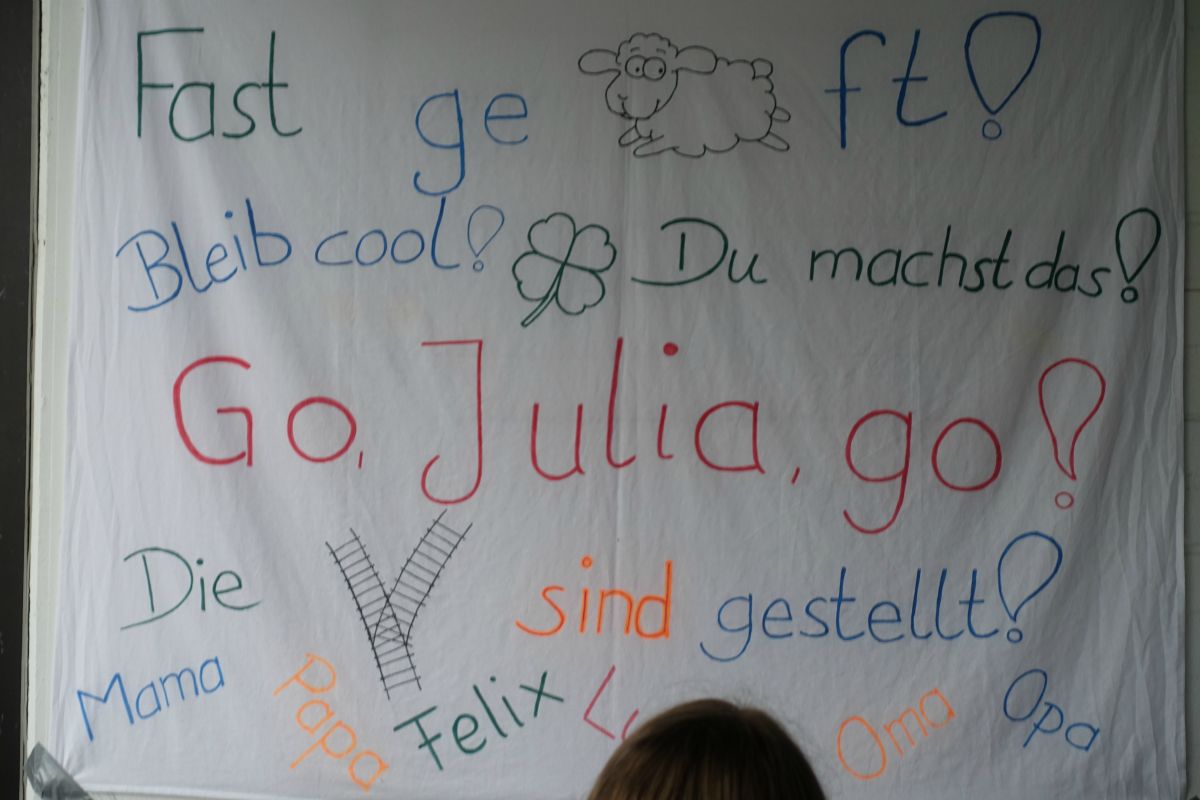 Fast ge ft!
Bleib cool! Du machst das!
Go, Julia, go!
Die sind gestellt!
Mama Papa Felix Oma Opa